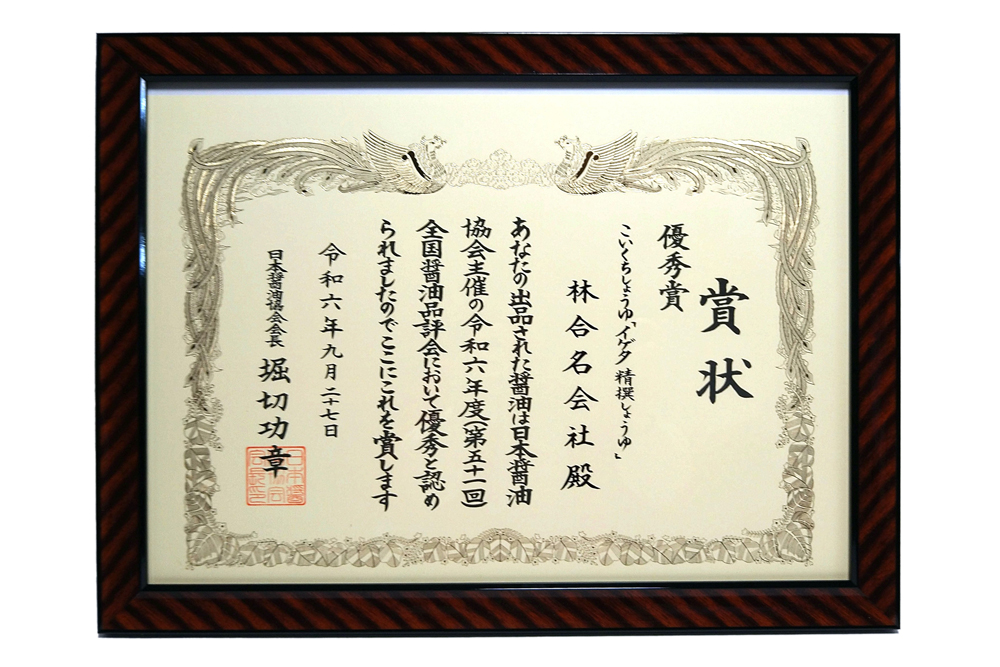 賞状
優秀賞
こいくちしょうゆ「イゲタ 精撰しょうゆ」
林合名会社殿
あなたの出品された醤油は日本醤油
協会主催の令和六年度(第五十一回)
全国醤油品評会において優秀と認め
られましたのでここにこれを賞します
令和六年九月二十七日
日本醤油協会会長 堀切功章